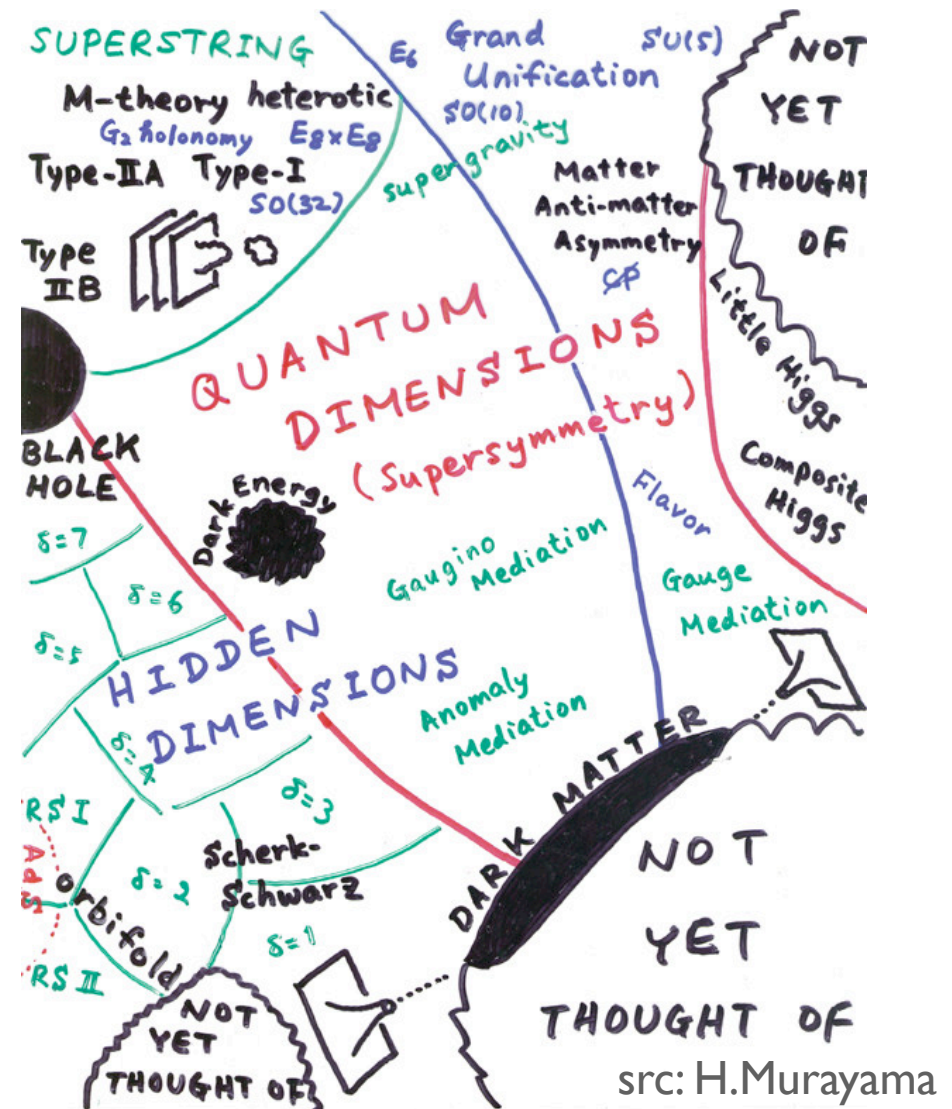 SUPERSTRING
M-theory heterotic
G2 holonomy E8xE8
Type-IIA Type-I
SO(32)
Type
IIB
E6
Grand
Unification
SU(5)
SO(10)
supergravity
Matter
Anti-matter
Asymmetry
CP
NOT
YET
THOUGHT
OF
Little Higgs
Composite
Higgs
QUANTUM
DIMENSIONS
(Supersymmetry)
BLACK
HOLE
Dark Energy
Flavor
Gaugino
Mediation
Gauge
Mediation
Anomaly
Mediation
δ=7
δ=6
δ=5
HIDDEN
DIMENSIONS
δ=4
δ=3
RS I
AdS
orbifold
δ=2
Scherk-
Schwarz
δ=1
RS II
DARK MATTER
NOT
YET
THOUGHT OF
NOT
YET
THOUGHT OF
src: H.Murayama